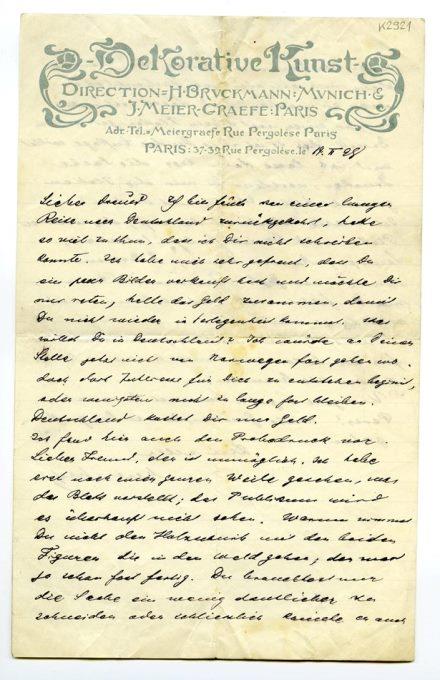 K2921
-Dekorative Kunst-
DIRECTION=H·BRVCKMANN:MVNICH·&
J·MEIER-GRAEFE:PARIS
Adr.Tel.=Meiergraefe Rue Pergolèse Paris
PARIS:37-39.Rue Pergolèse.le 14. II 98
Lieber Freund Ich bin eben von einer langen
Reise nach Deutschland zurückgekehrt, hatte
so viel zu thun, dass ich Dir nicht schreiben
konnte. Ich habe mich sehr gefreut, dass Du
ein paar Bilder verkauft hast und möchte Dir
nur raten, halte das Geld zusammen, damit
Du nicht wieder in Verlegenheit kommst. Was
willst Du in Deutschland? Ich würde an Deiner
Stelle jetzt nicht von Norwegen fort gehen wo
doch dort Interesse für Dich zu entstehen beginnt,
oder wenigstens nicht zu lange fort bleiben.
Deutschland kostet Dir nur Geld.
Ich fand hier auch den Probedruck vor.
Lieber Freund, das ist unmöglich. Ich habe
erst nach einer ganzen Weile gesehen, was
das Blatt vorstellt; das Publikum wird
es überhaupt nicht sehen. Warum nimmst
Du nicht den Holzschnitt mit den beiden
Figuren die in den Wald gehen; das war
so schon fast fertig. Du brauchtest nur
die Sache ein wenig deutlicher zu
schneiden oder schliesslich könnte es auch